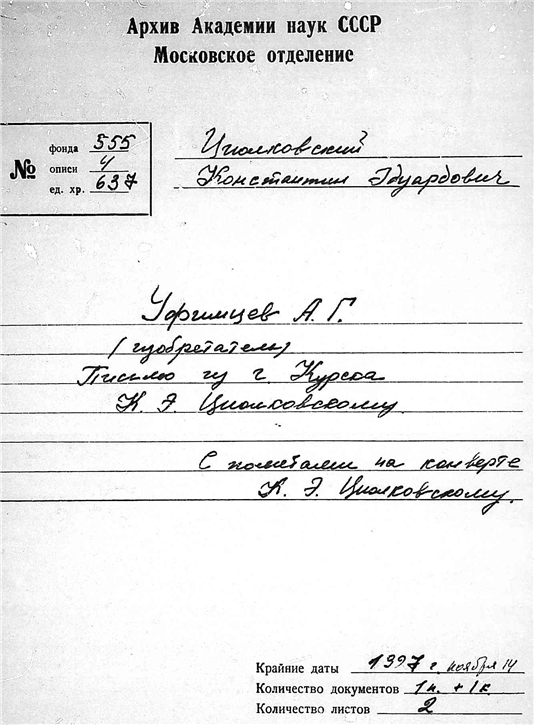 Архив Академии наук СССР
Московское отделение
№
фонда 555
описи 4
ед. хр. 637
Циолковский
Константин Эдуардович
Уфимцев А. Г.
(изобретатель)
Письмо из г. Курска
К. Э. Циолковскому.
С пометами на конверте
К. Э. Циолковскому.
Крайние даты 1927 г. ноября 14
Количество документов 1п. + 1к.
Количество листов 2